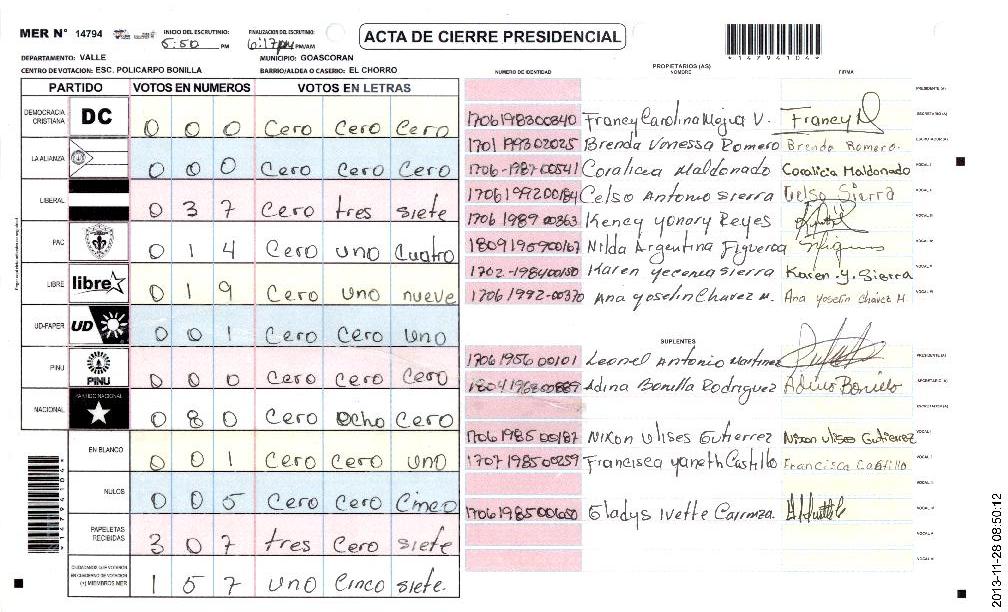 MER N° 14794 INICIO DEL ESCRUTINIO: 5:50 PM FINALIZACION DEL ESCRUTINIO: 6:17 pm PM/AM ACTA DE CIERRE PRESIDENCIAL
*14794104*
DEPARTAMENTO: VALLE MUNICIPIO: GOASCORAN
CENTRO DE VOTACION: ESC. POLICARPO BONILLA BARRIO/ALDEA O CASERIO: EL CHORRO
PARTIDO VOTOS EN NUMEROS VOTOS EN LETRAS
DEMOCRACIA CRISTIANA DC 0 0 0 Cero Cero Cero
LA ALIANZA 0 0 0 Cero Cero Cero
LIBERAL 0 3 7 Cero tres siete
PAC 0 1 4 Cero uno Cuatro
LIBRE libre 0 1 9 Cero uno nueve
UD-FAPER UD 0 0 1 Cero Cero uno
PINU PINU 0 0 0 Cero Cero Cero
NACIONAL PARTIDO NACIONAL 0 8 0 Cero ocho Cero
EN BLANCO 0 0 1 Cero Cero uno
NULOS 0 0 5 Cero Cero Cinco
PAPELETAS RECIBIDAS 3 0 7 tres Cero siete
CIUDADANOS QUE VOTARON EN CUADERNO DE VOTACION (+) MIEMBROS MER 1 5 7 uno Cinco siete.
*14794104*
PROPIETARIOS (AS)
NUMERO DE IDENTIDAD NOMBRE FIRMA
PRESIDENTE (A)
1706198300840 Francy Carolina Mejia V. Francy M SECRETARIO (A)
1701 1993 02025 Brenda Vanessa Romero Brenda Romero. ESCRUTADOR (A)
1706-1987-00541 Coralicea Maldonado Coralicia Maldonado VOCAL I
1706 1992 00184 Celso Antonio sierra Celso Sierra VOCAL II
1706 1989 00363 Kency yonary Reyes VOCAL III
1809195900167 Nilda Argentina Figueroa VOCAL IV
1702-198400150 Karen yecenia sierra Karen. y. Sierra VOCAL V
1706 1992-00370 Ana yoselin Chavez M. Ana Yoselin Chávez M. VOCAL VI
SUPLENTES
1706 1956 00101 Leonel Antonio Martinez PRESIDENTE (A)
1804196800889 Adina Bonilla Rodriguez Adina Bonilla SECRETARIO (A)
ESCRUTADOR (A)
1706 1985 00187 Nixon Ulises Gutierrez Nixon Ulises Gutierrez VOCAL I
1707 1985 00259 Francisca yaneth Castillo Francisca Castillo VOCAL II
VOCAL III
1706198500650 Gladys Ivette Carranza. VOCAL IV
VOCAL V
VOCAL VI
2013-11-28 08:50:12